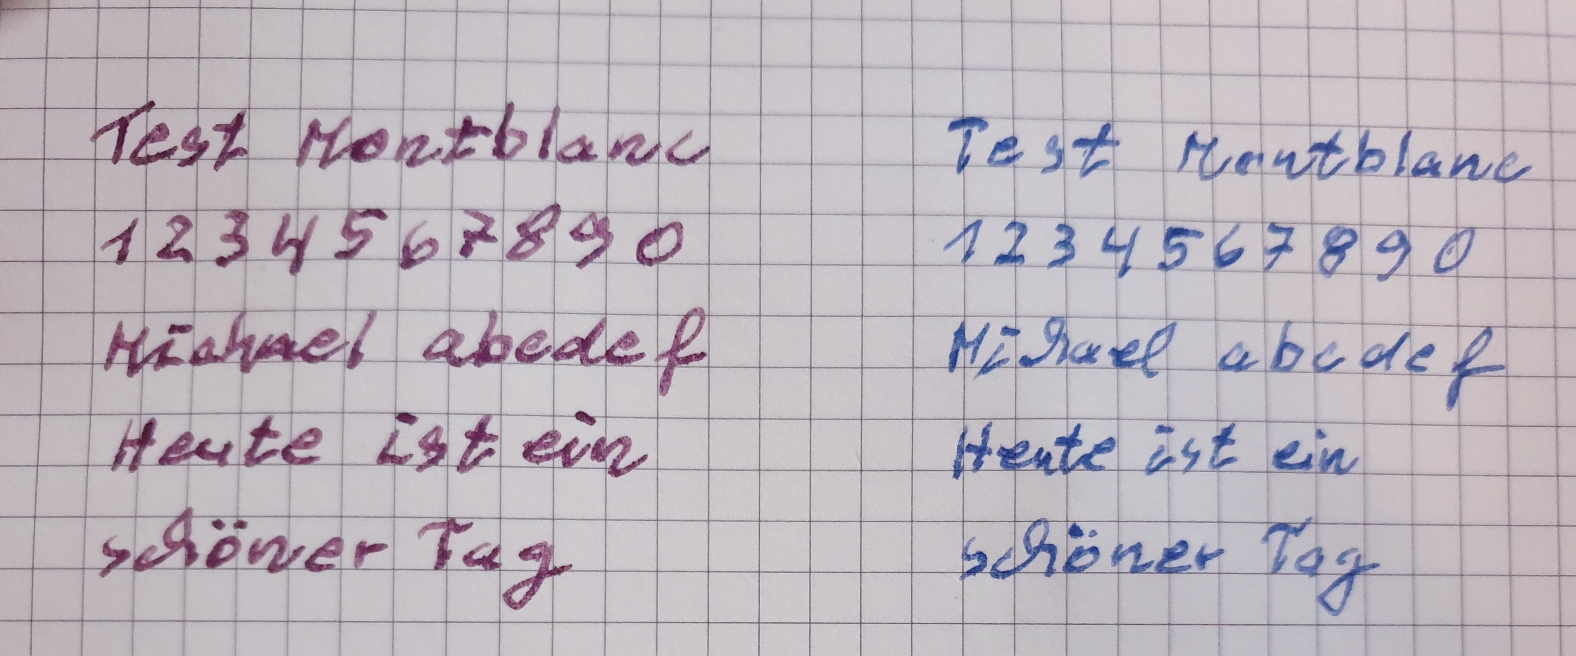 Test Montblanc
1 2 3 4 5 6 7 8 9 0
Michael abcdef
Heute ist ein
schöner Tag
Test Montblanc
1 2 3 4 5 6 7 8 9 0
Michael abcdef
Heute ist ein
schöner Tag